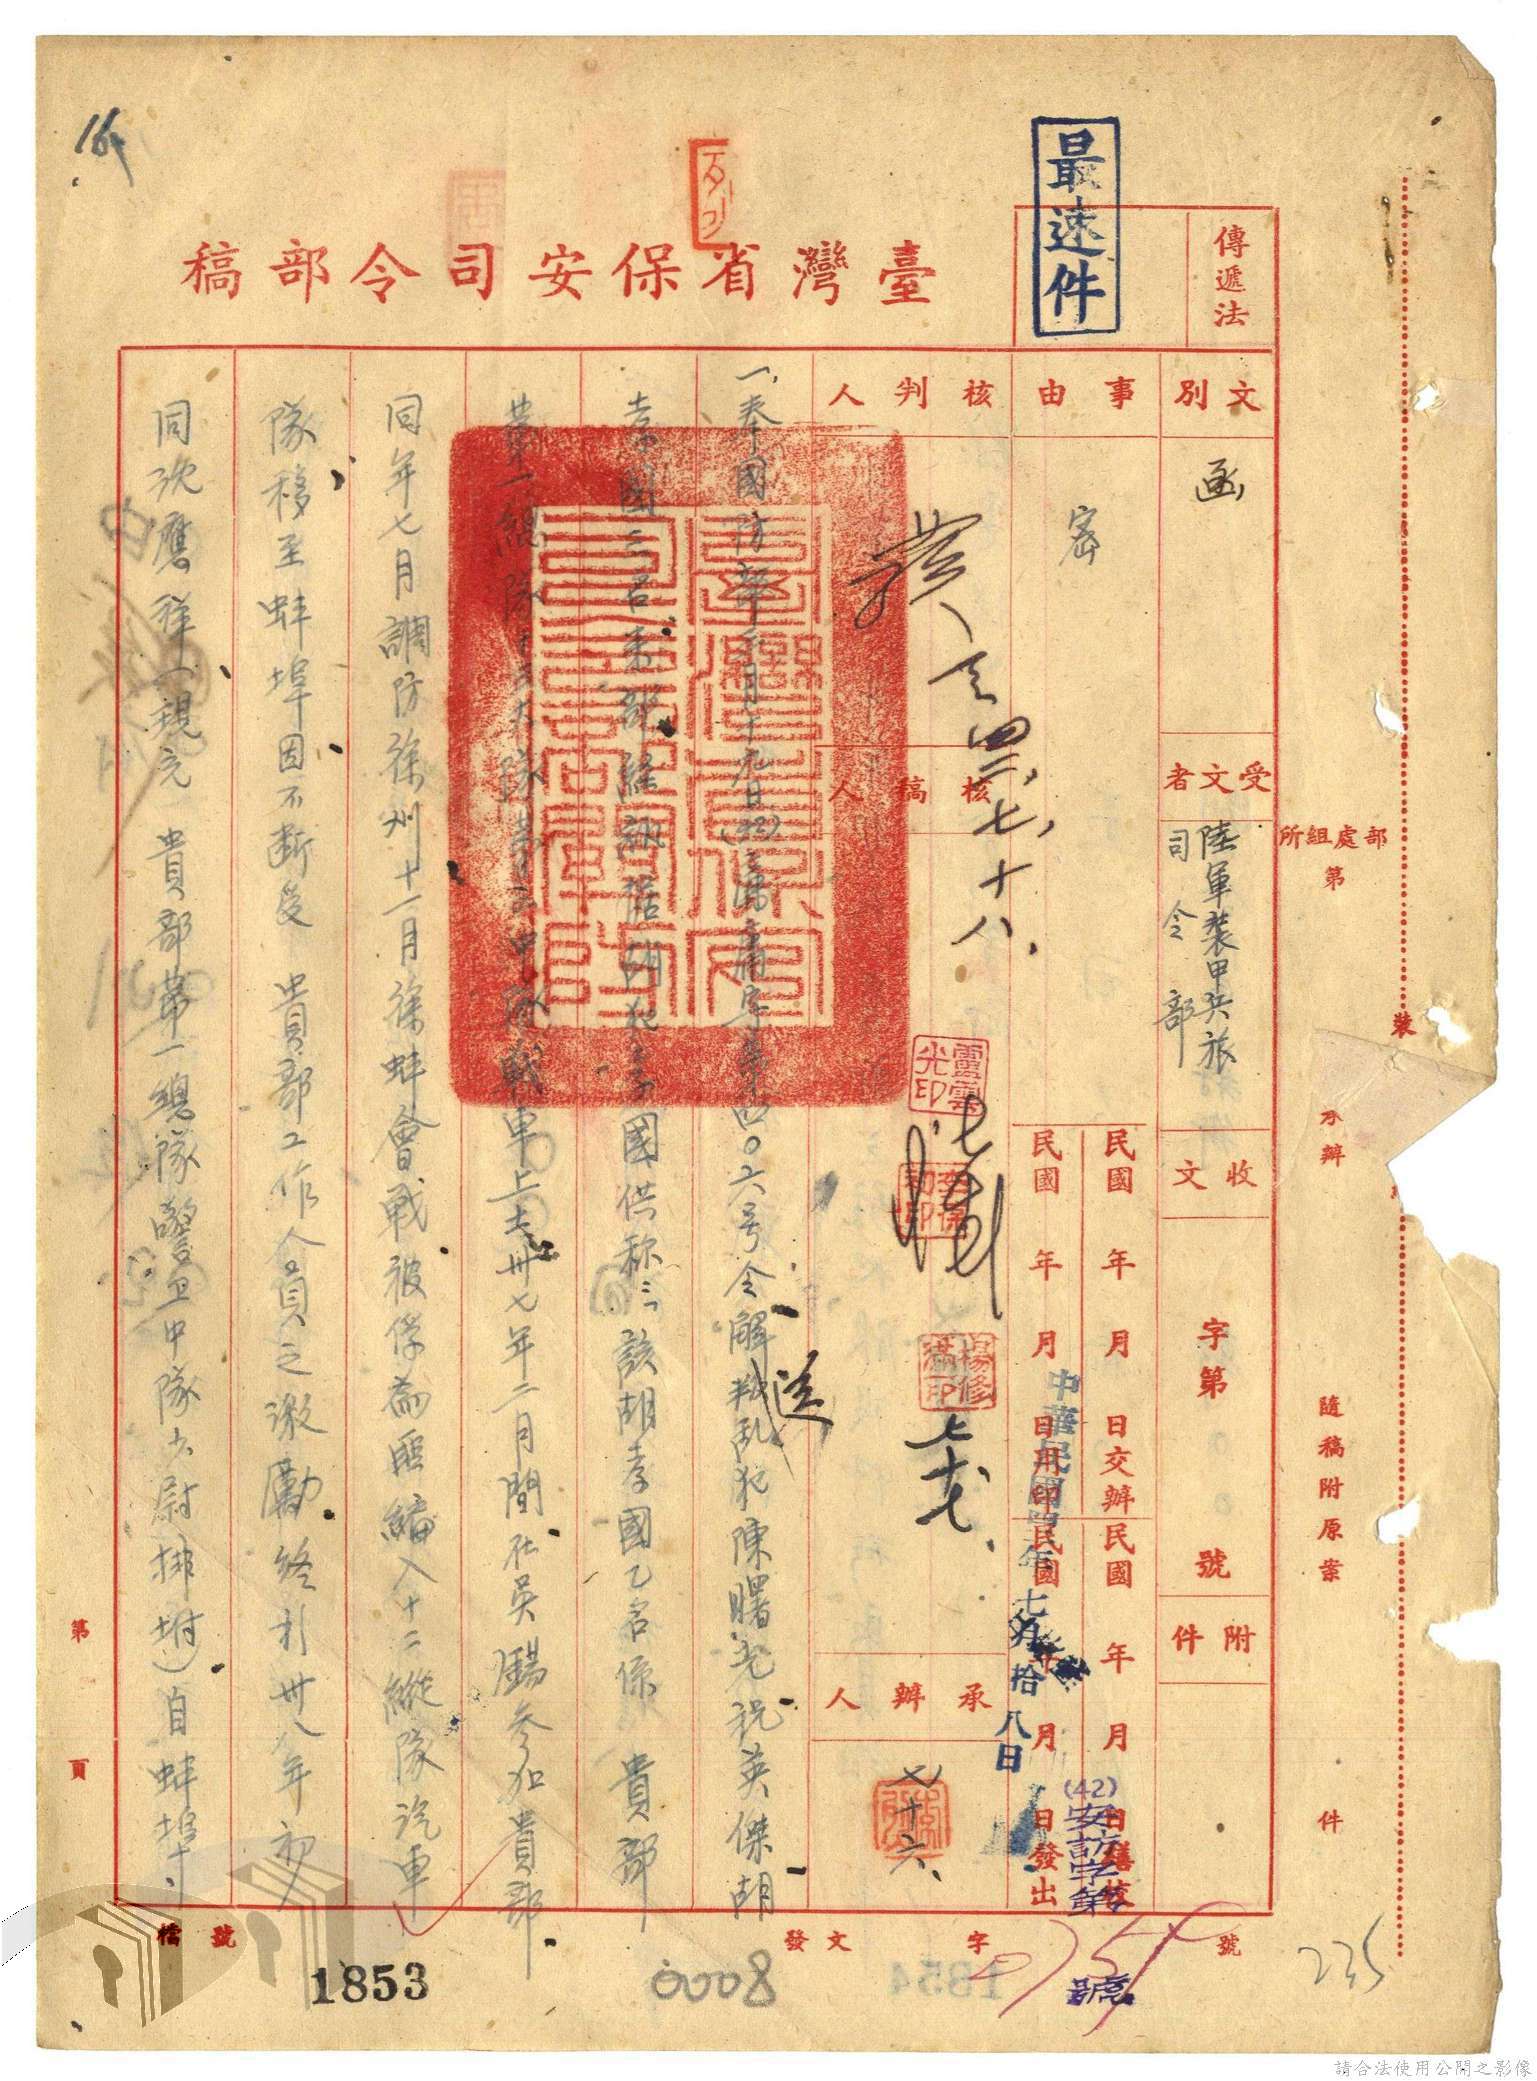 最速件
傳遞法
臺灣省保安司令部稿
文別
函
受文者
陸軍裝甲兵旅
司令部
收文
字第
號
附件
事由
密
民國 年 月 日交辦
民國 年 月 日繕校
民國 年 月 日用印
民國 年 月 日發出
中華民國 年七月拾八日
(42)安訪字第
號
核判人
發
四二、七、十八、
核稿人
七、十七、
承辦人
七、十六、
一、奉國防部 月十九日(42) 字第 四〇六号令解送叛乱犯陳曙光祝英傑胡
孝國三名來部經訊據胡犯孝國供称三、該胡孝國乙名係 貴部
第一總隊 大隊 中隊戰車上士卅七年二月間在吳錫參加貴部
同年七月調防徐州十一月徐蚌會戰被俘爲匪編入十二縱隊汽車
隊移至蚌埠因不断受 貴部工作人員之激勵終於卅八年初
同沈應祥(現充 貴部第一總隊警卫中隊少尉排坿)自蚌埠
部處組所
第
承辦
隨稿附原案
件
裝
第 頁
檔號
發文 字 號
1853
0008
235
16
請合法使用公開之影像